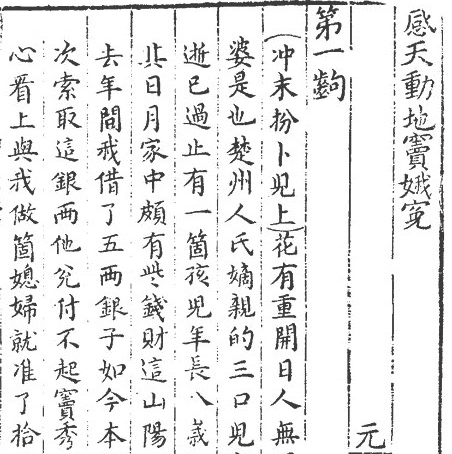 感天動地竇娥寃
元
第一齣
(冲末扮卜兒上)花有重開日人無
婆是也楚州人氏嫡親的三口兒
逝已過止有一箇孩兒年長八歲
其日月家中頗有些錢財這山陽
去年間我借了五兩銀子如今本
次索取這銀兩他兌付不起竇秀
心看上與我做箇媳婦就准了拾